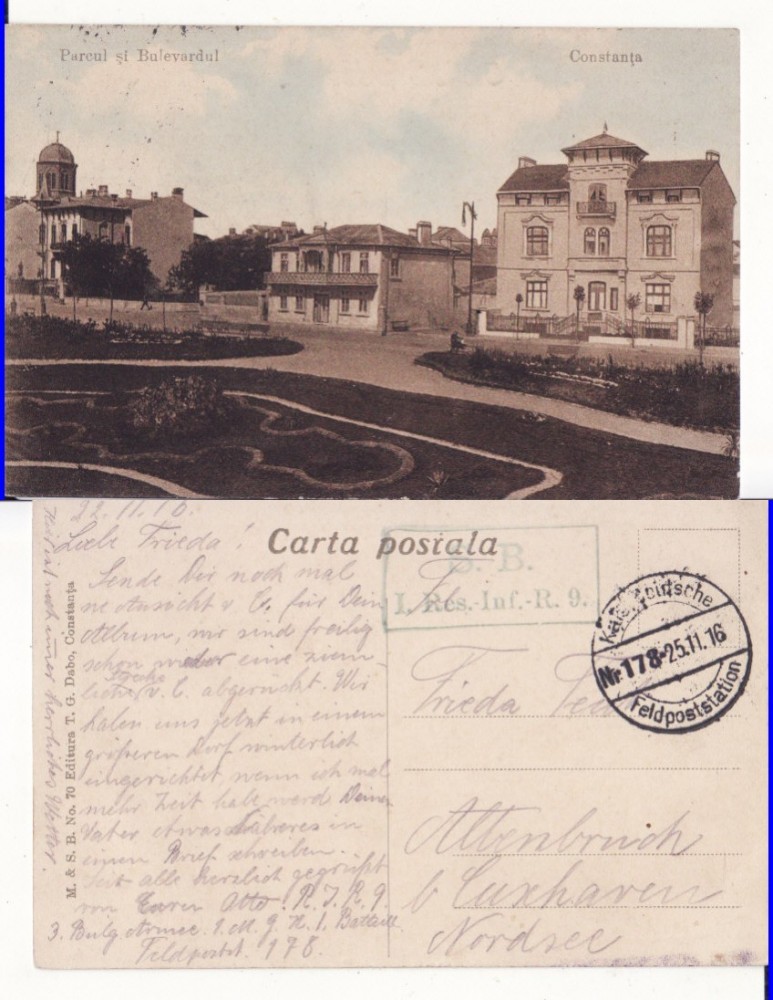 Parcul și Bulevardul
Constanța
22.11.16.
Liebe Frieda!
Carta postala
S. B.
I. Res.-Inf.-R. 9.
Nr. 178 - 25.11.16
Feldpoststation
Sende Dir noch mal
ne Ansicht v. C. für Dein
Album, wir sind freilig
schon wieder eine ziem-
liche v. C. abgerückt. Wir
haben uns jetzt in einem
größeren Dorf winterlich
eingerichtet, wenn ich mal
mehr Zeit habe werd Deinem
Vater etwas Näheres in
einen Brief schreiben.
Seit alle herzlich gegrüßt
von Euren Otto. R. I. R. 9.
3. Bulg Armee. 1. M. G. K. 1. Bataill
Feldpostst. 178.
M. & S. B. No. 70 Editura T. G. Dabo, Constanța
Frl.
Frieda
Altenbruch
b Cuxhaven
Nordsee